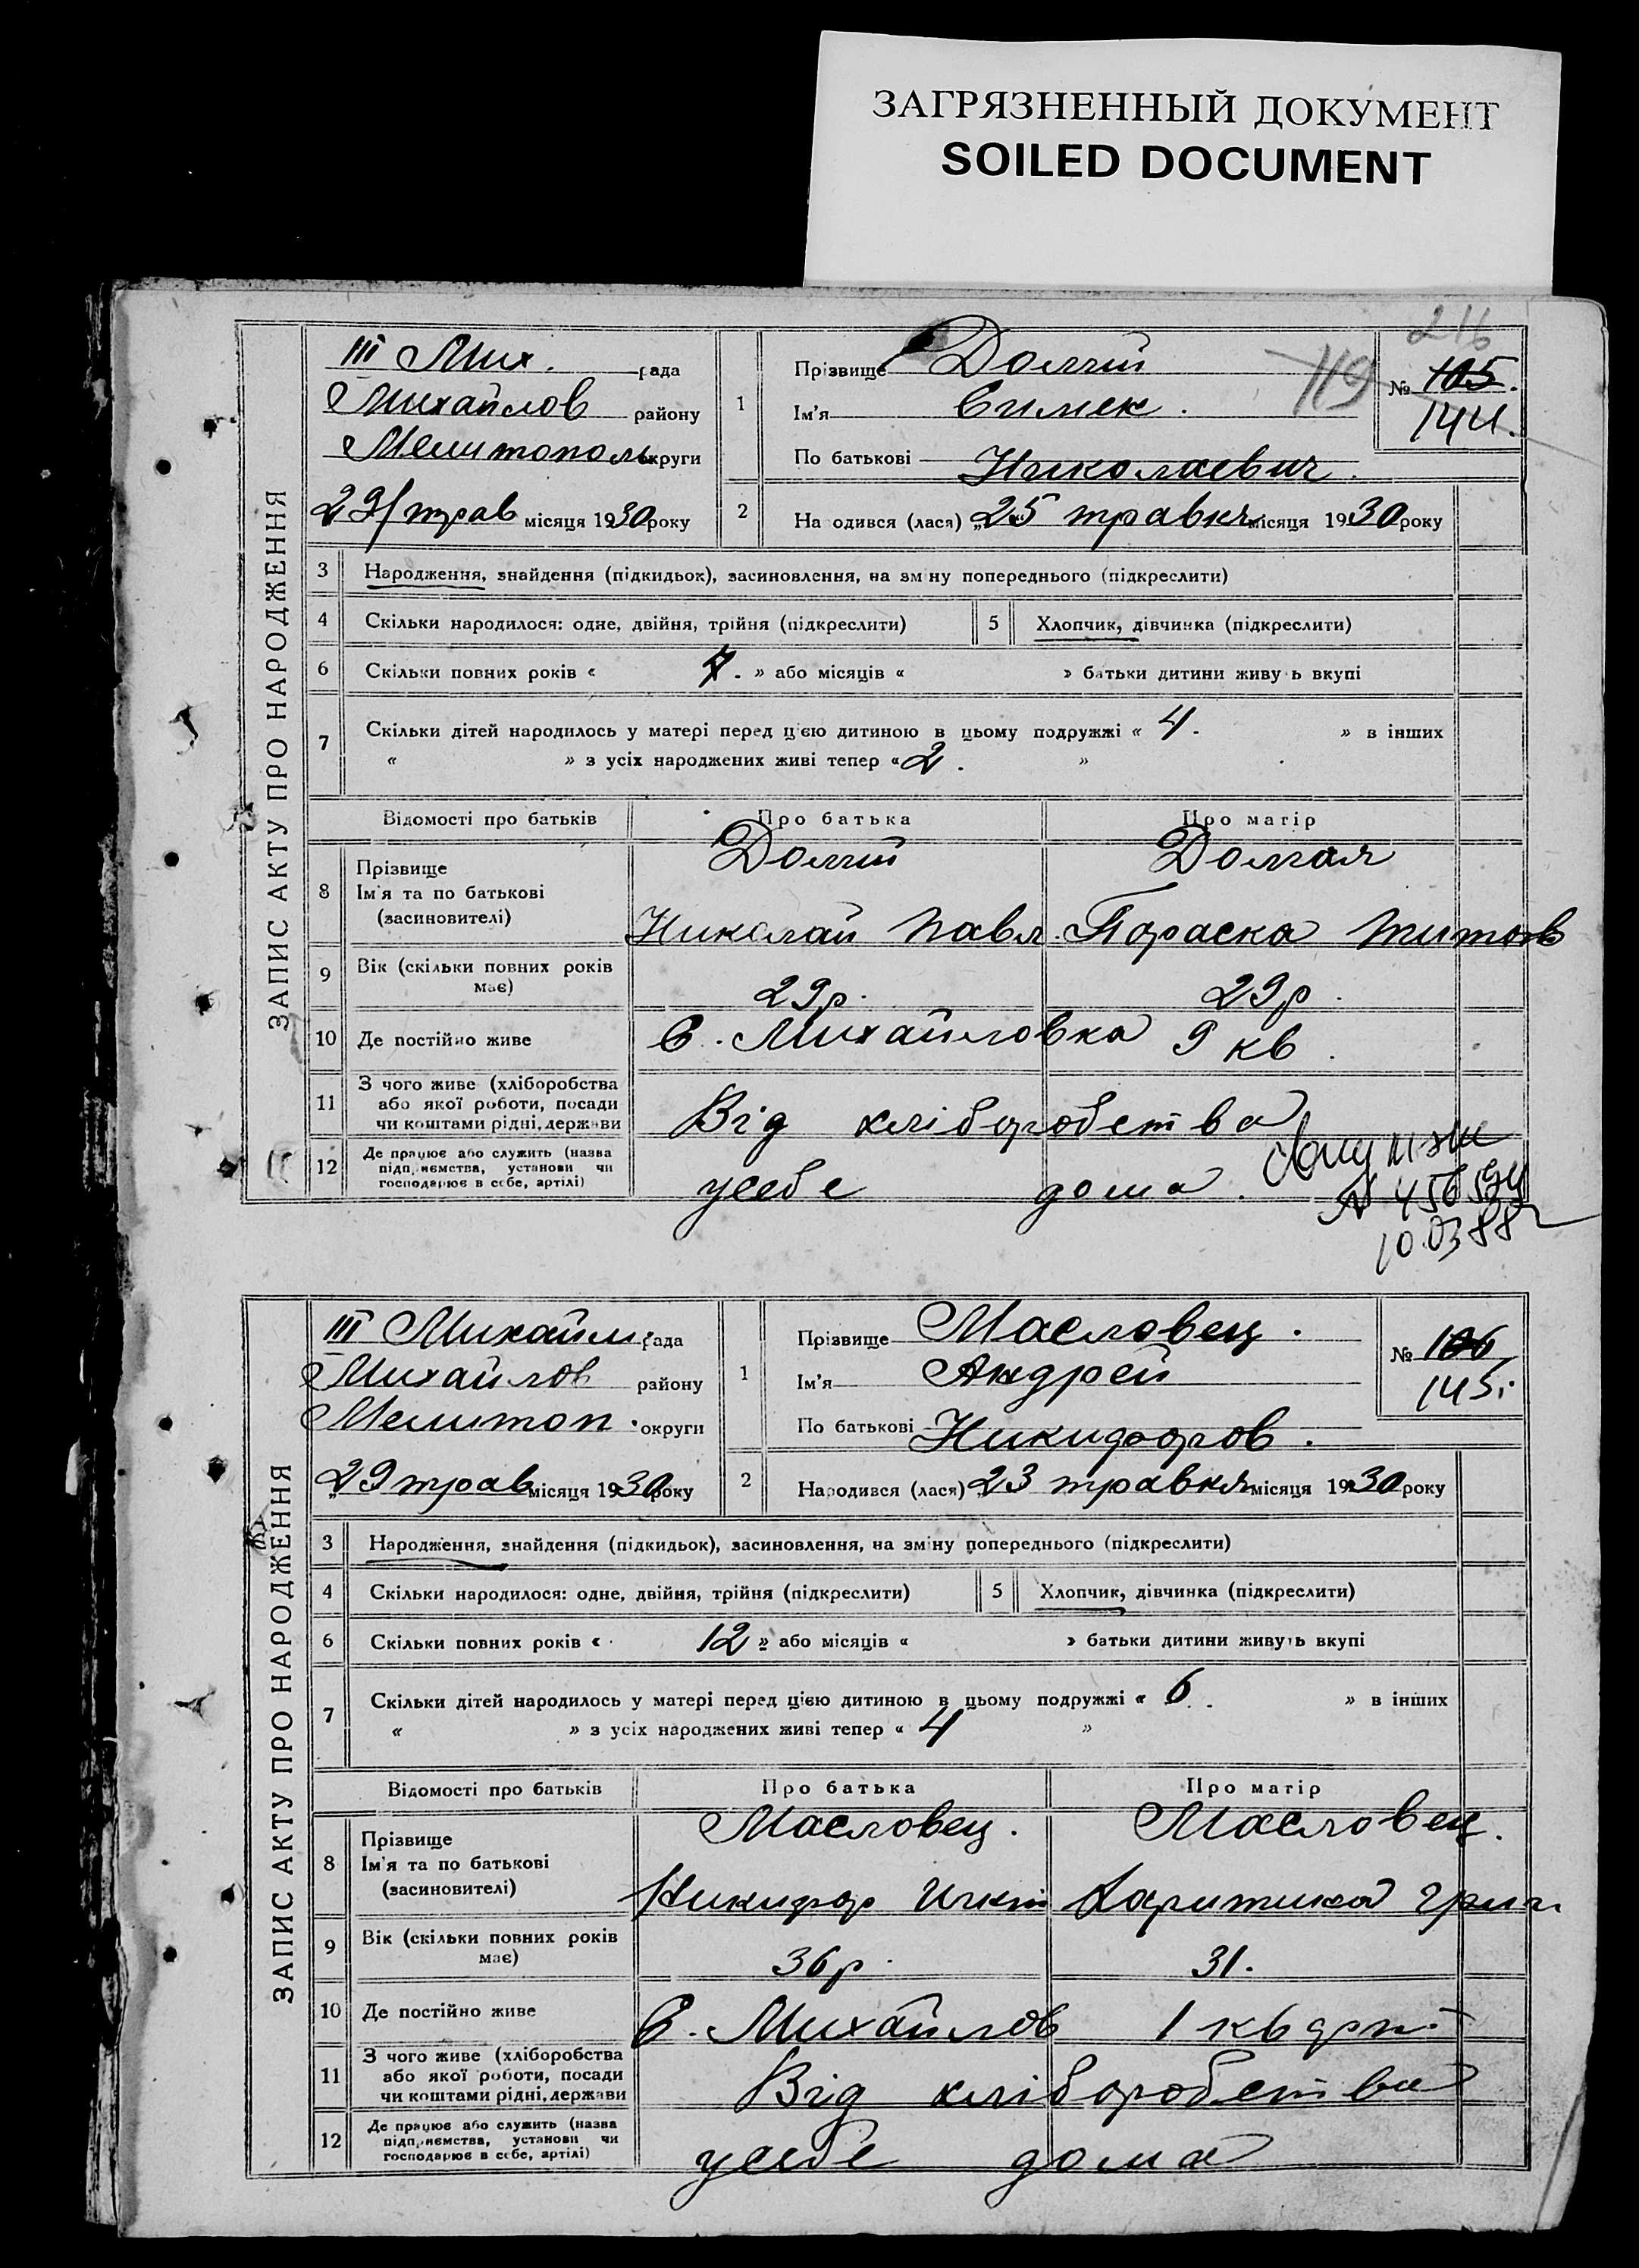 ЗАГРЯЗНЕННЫЙ ДОКУМЕНТ
SOILED DOCUMENT
216
119
ЗАПИС АКТУ ПРО НАРОДЖЕННЯ
III Мих. рада
Михайлов району
Мелитополь округи
29/трав місяця 1930 року
1
Прізвище Долгий
Ім'я
По батькові Николаевич.
№ 105.
144.
2
На одився (лася) „25 травня місяця 1930 року
3 Народження, знайдення (підкидьок), засиновлення, на зм ну попереднього (підкреслити)
4 Скільки народилося: одне, двійня, трійня (підкреслити)
5 Хлопчик, дівчинка (підкреслити)
6 Скільки повних років « 7. » або місяців « » батьки дитини живу ь вкупі
7 Скільки дітей народилось у матері перед цією дитиною в цьому подружжі « 4. » в інших
« » з усіх народжених живі тепер « 2. »
Відомості про батьків Про батька Про матір
8 Прізвище
Ім'я та по батькові
(засиновителі)
Долгий Долгая
Николай Павл. Параска Титов
9 Вік (скільки повних років
має)
29р. 29р.
10 Де постійно живе С. Михайловка 9 кв.
11 З чого живе (хліборобства
або якої роботи, посади
чи коштами рідні, держави
Від хліборобства
12 Де працює або служить (назва
підприємства, установи чи
господарює в себе, артілі)
усебе дома.
10.03 88
ЗАПИС АКТУ ПРО НАРОДЖЕННЯ
III Михайл. рада
Михайлов району
Мелитоп. округи
„29 трав місяця 1930 року
1
Прізвище Масловец.
Ім'я Андрей
По батькові Никифоров.
№ 106
145.
2
Народився (лася) 23 травня місяця 1930 року
3 Народження, знайдення (підкидьок), засиновлення, на зм ну попереднього (підкреслити)
4 Скільки народилося: одне, двійня, трійня (підкреслити)
5 Хлопчик, дівчинка (підкреслити)
6 Скільки повних років « 12 » або місяців « » батьки дитини живуть вкупі
7 Скільки дітей народилось у матері перед цією дитиною в цьому подружжі « 6. » в інших
« » з усіх народжених живі тепер « 4 »
Відомості про батьків Про батька Про матір
8 Прізвище
Ім'я та по батькові
(засиновителі)
Масловец. Масловец.
Никифор Харитина Григ.
9 Вік (скільки повних років
має)
36р. 31.
10 Де постійно живе С. Михайлов 1 кв
11 З чого живе (хліборобства
або якої роботи, посади
чи коштами рідні, держави
Від хліборобства
12 Де працює або служить (назва
підприємства, установи чи
господарює в себе, артілі)
усебе дома